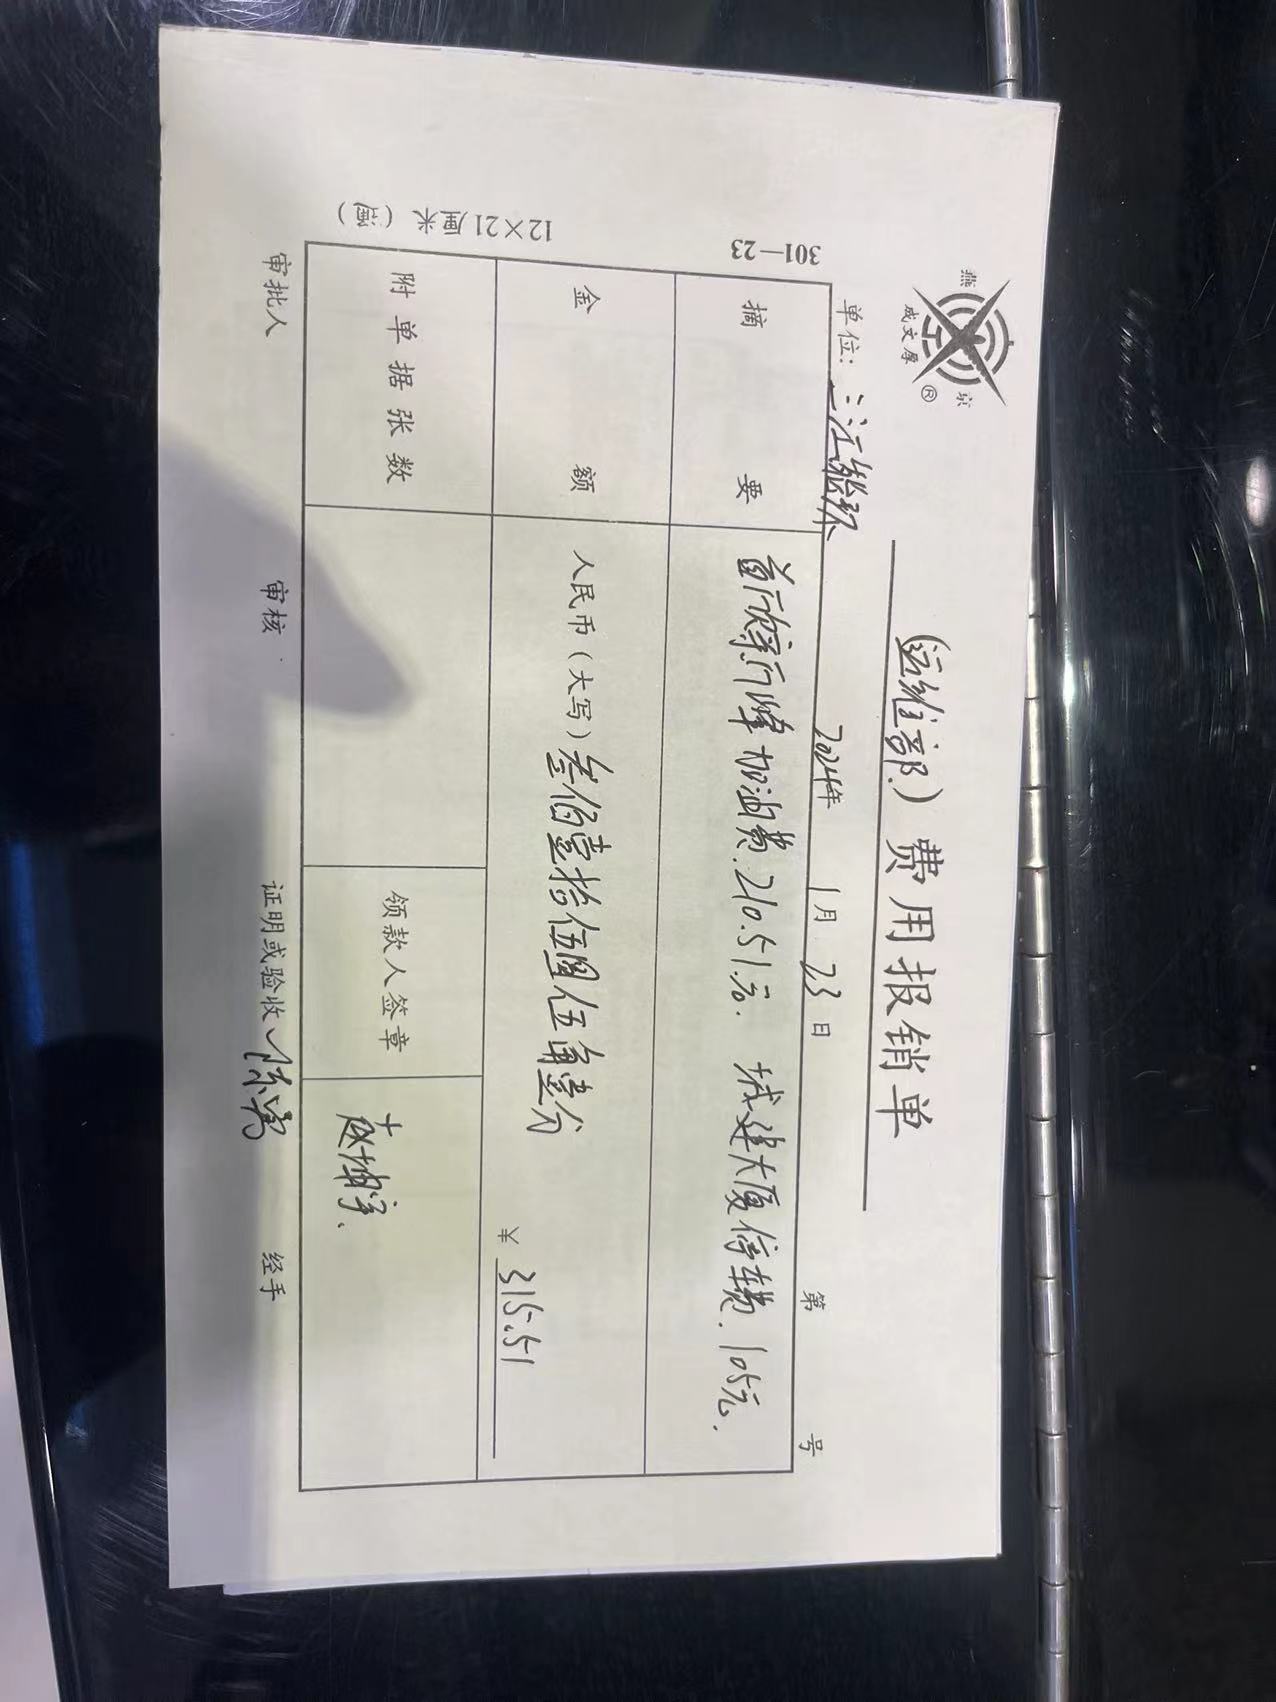 燕 京
成文厚
®
(运维部.) 费用报销单
单位: 三江 2024年 1月 23日 第 号
301—23
摘要 加油费.210.51元. 城建大厦停车费.105元.
金额 人民币(大写)叁佰壹拾伍圆伍角壹分
¥ 315.51
附单据张数 领款人签章
12×21厘米(通)
审批人 审核 证明或验收 经手